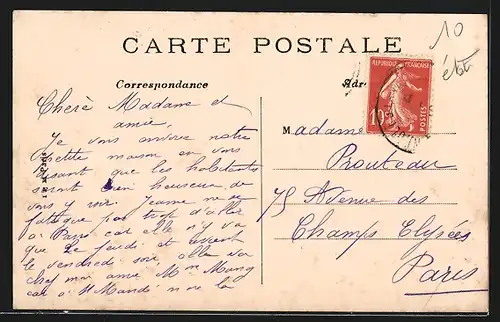 CARTE POSTALE
10
été
Correspondance
RÉPUBLIQUE FRANÇAISE
10
POSTES
Chère Madame et
amie,
Je vous envoie notre
petite maison en vous
disant que les habitants
seront bien heureux de
vous y voir. Jeanne ne se
fatigue pas trop d'aller
à Paris car elle n'y va
que le jeudi et
le vendredi soir, elle va
chez mon amie Mme
car à St Mandé
Madame
Prouteau
75 Avenue des
Champs Elysées
Paris